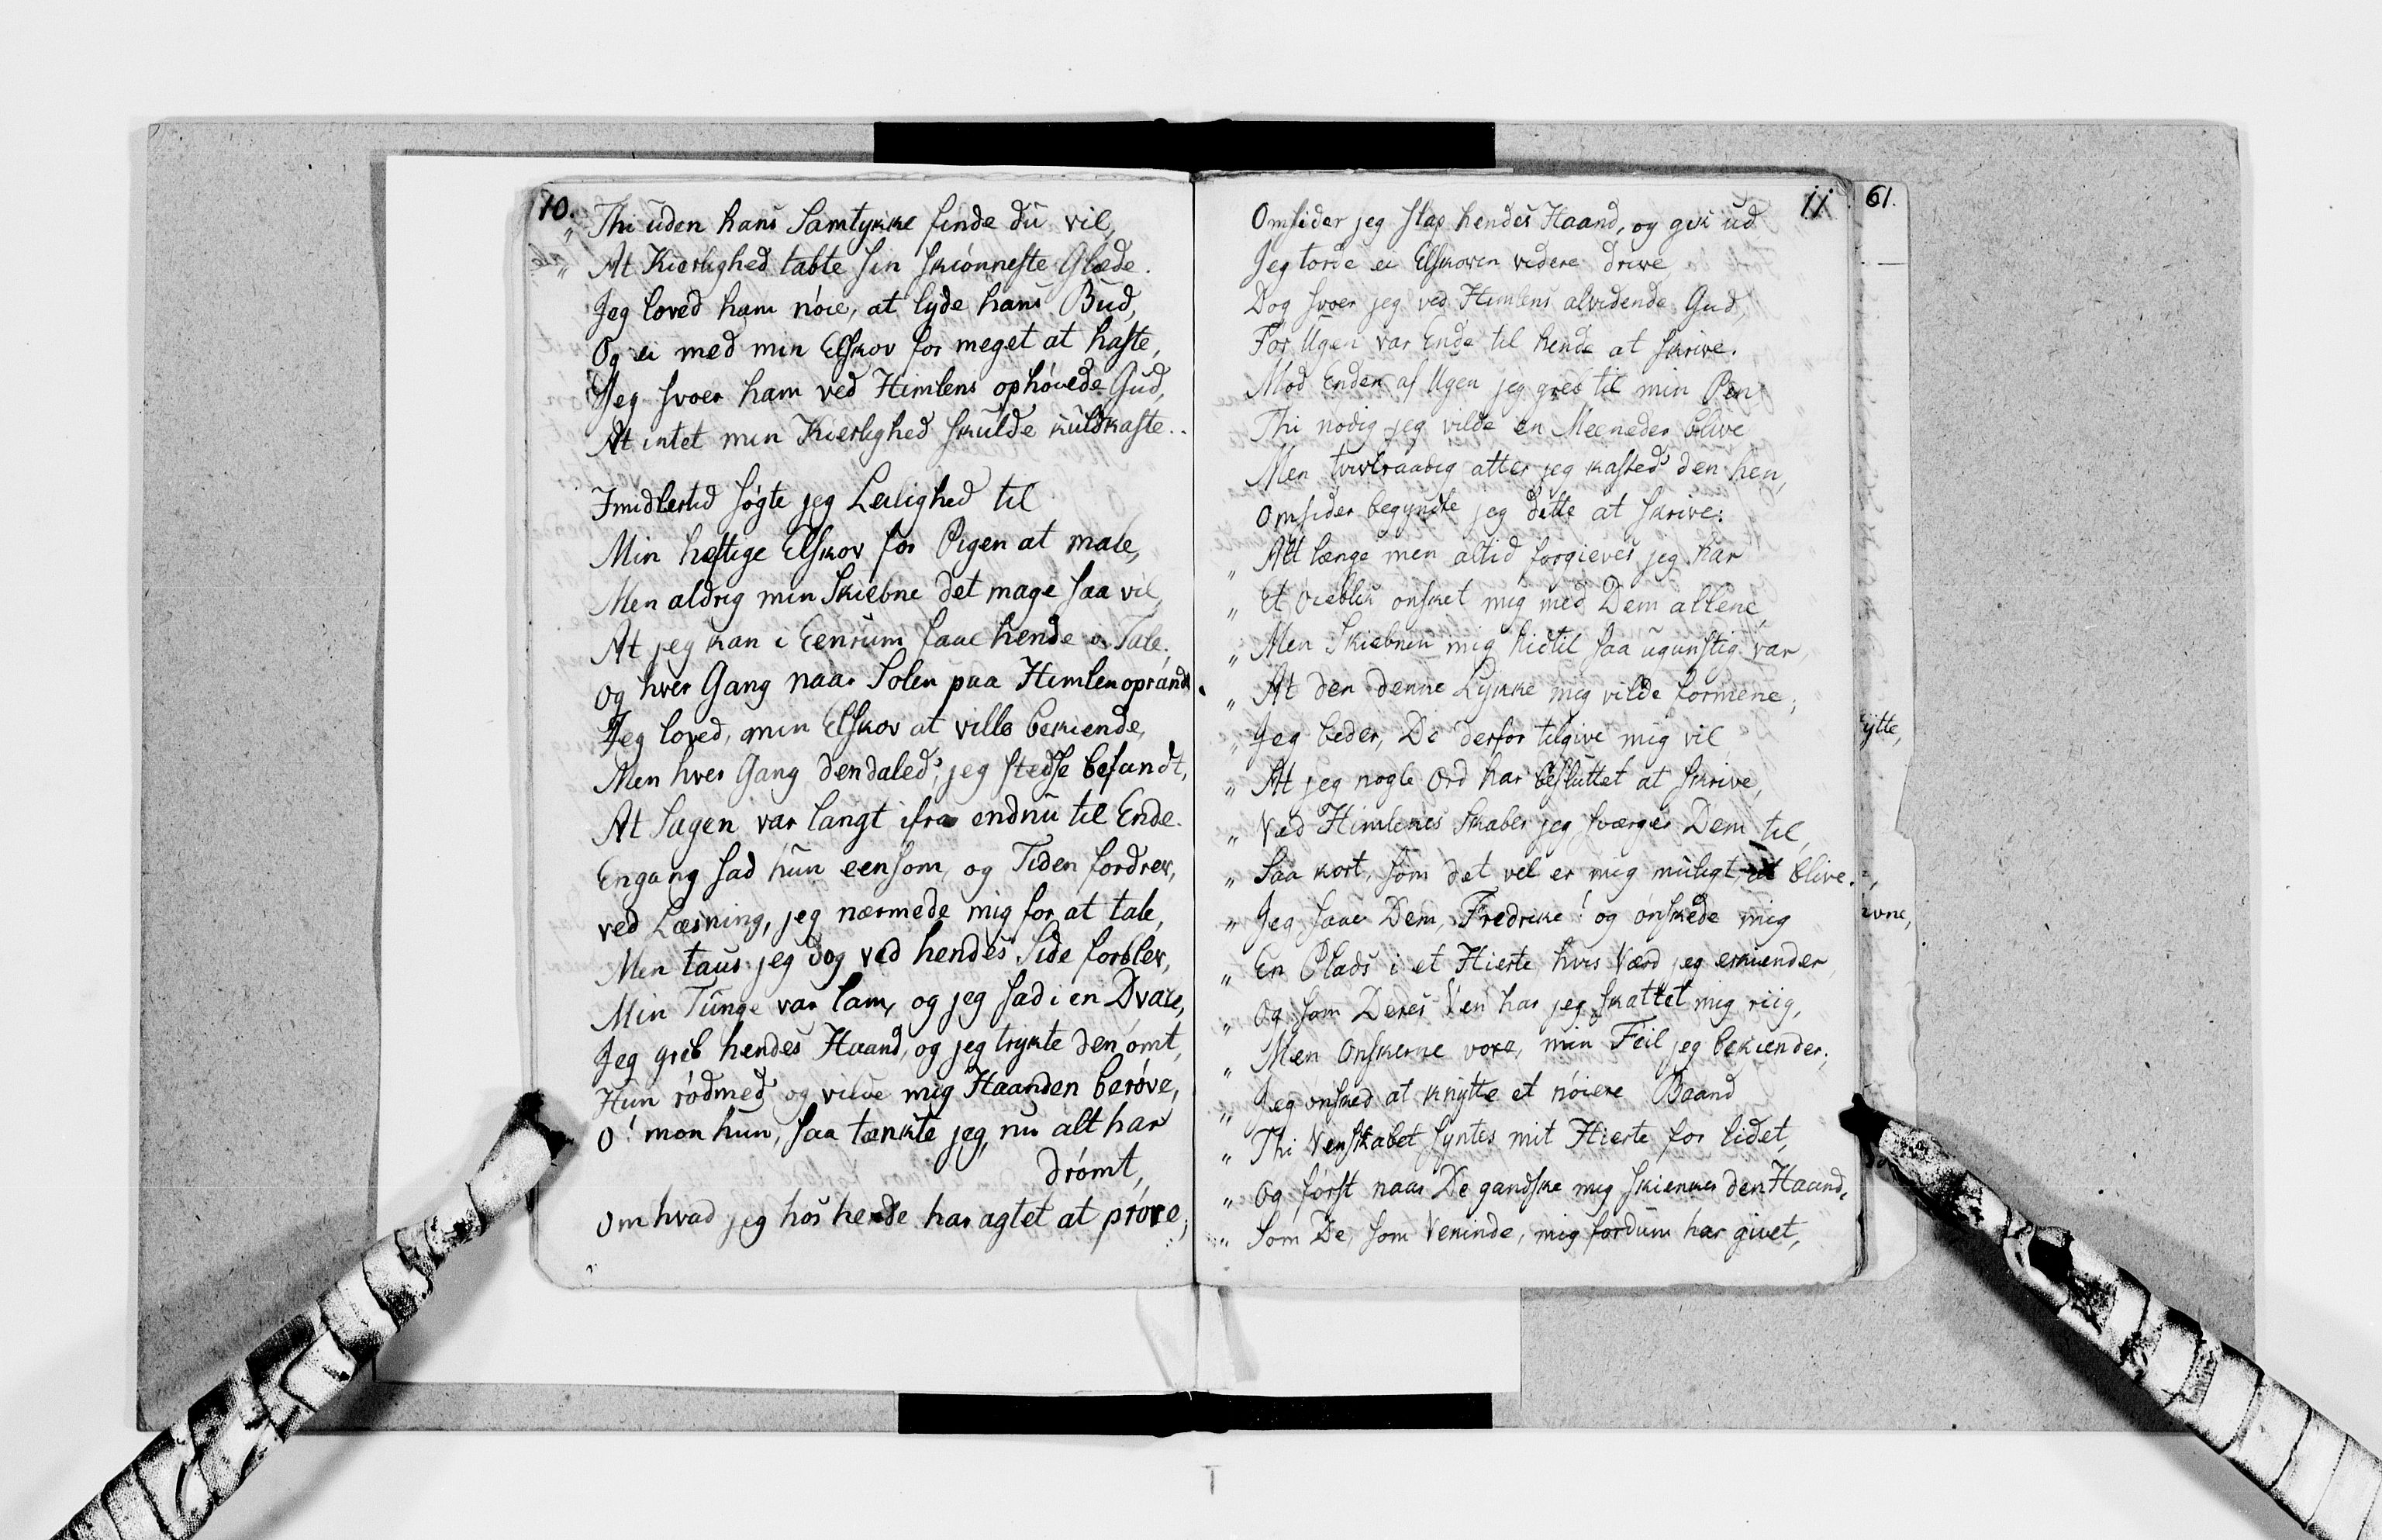 10.
„ Thi uden hans Samtykke finde du vil,
„ At Kierlighed tabte sin skiønneste Glæde.
Jeg loved ham nøie, at lyde hans Bud,
Og ei med min Elskov for meget at haste,
Jeg svoer ham ved Himlens ophøiede Gud,
At intet min Kierlighed skulde kuldkaste..
Imidlertid søgte jeg Leilighed til
Min heftige Elskov for Pigen at male,
Men aldrig min Skiebne det mage saa vil,
At jeg kan i Eenrum faae hende i Tale;
Og hver Gang naar Solen paa Himlen oprandt.
Jeg loved, min Elskov at ville bekiende,
Men hver Gang den daled', jeg stedse befandt,
At Sagen var langt ifra endnu til Ende.
Engang sad hun eensom, og Tiden fordrev,
ved Læsning, jeg nærmede mig for at tale,
Men taus jeg dog ved hendes Side forblev,
Min Tunge var lam, og jeg sad i en Dvale,
Jeg greb hendes Haand, og jeg trykte den ømt,
Hun rødmed og vilde mig Haanden berøve,
O! mon hun, saa tænkte jeg, nu alt har
drømt,
Om hvad jeg hos hende har agtet at prøve;
11
Omsider jeg slap hendes Haand, og gik ud
Jeg torde ei Elskoven videre drive
Dog svoer jeg ved Himlens alvidende Gud,
Før Ugen var Ende til hende at skrive.
Mod Enden af Ugen jeg greb til min Pen
Thi nødig jeg vilde en Meeneder blive
Men tvivlraadig atter jeg kasted' den hen,
Omsider begyndte jeg dette at skrive:
„ Alt længe men altid forgieves jeg har
„ Et Øieblik ønsket mig med Dem allene,
„ Men Skiebnen mig hidtil saa ugunstig var,
„ At den denne Lykke mig vilde formene;
„ Jeg beder, De derfor tilgive mig vil
„ At jeg nogle Ord har besluttet at skrive,
„ Ved Himlenes Skaber jeg sværger Dem til,
„ Saa kort, som det vel er mig muligt, at blive.
„ Jeg saae Dem, Fredrike! og ønskede mig
„ En Plads i et Hierte hvis Værd jeg erkiender,
„ Og som Deres Ven har jeg skattet mig riig,
„ Men Ønskerne voxe, min Feil jeg bekiender;
„ Jeg ønsked at knytte et nøiere Baand
„ Thi Venskabet syntes mit Hierte for lidet,
„ Og først naar De gandske mig skienker den Haand,
„ Som De, som Veninde, mig fordum har givet,
61.
ytte,
vne,